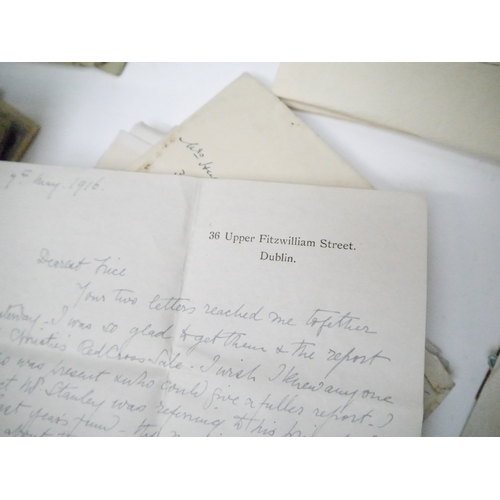 Mrs
9th May 1916.
36 Upper Fitzwilliam Street.
Dublin.
Dearest
Your two letters reached me together
I was so glad to get them & the report
Christies Red Cross Sale. I wish I knew any one
was present & who could give a fuller report.
Mr Stanley was referring to his
year's
about